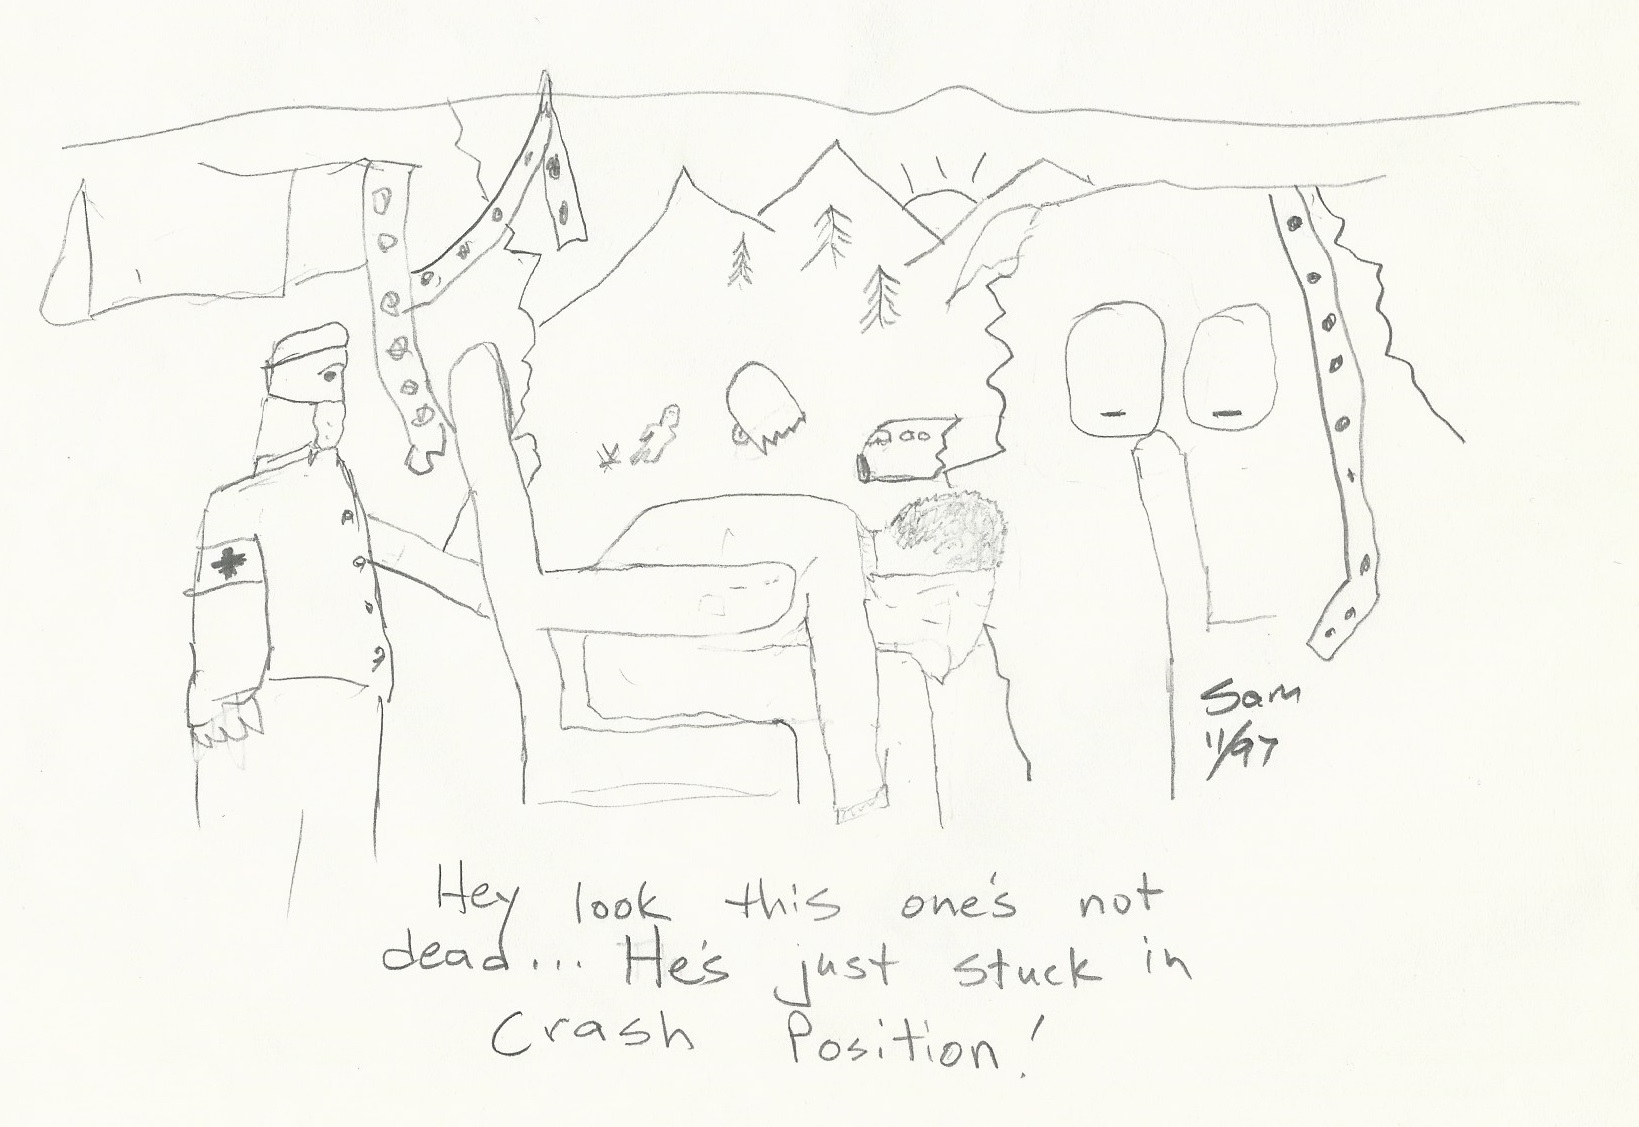 Sam
11/97
Hey look this one's not
dead... He's just stuck in
Crash Position!